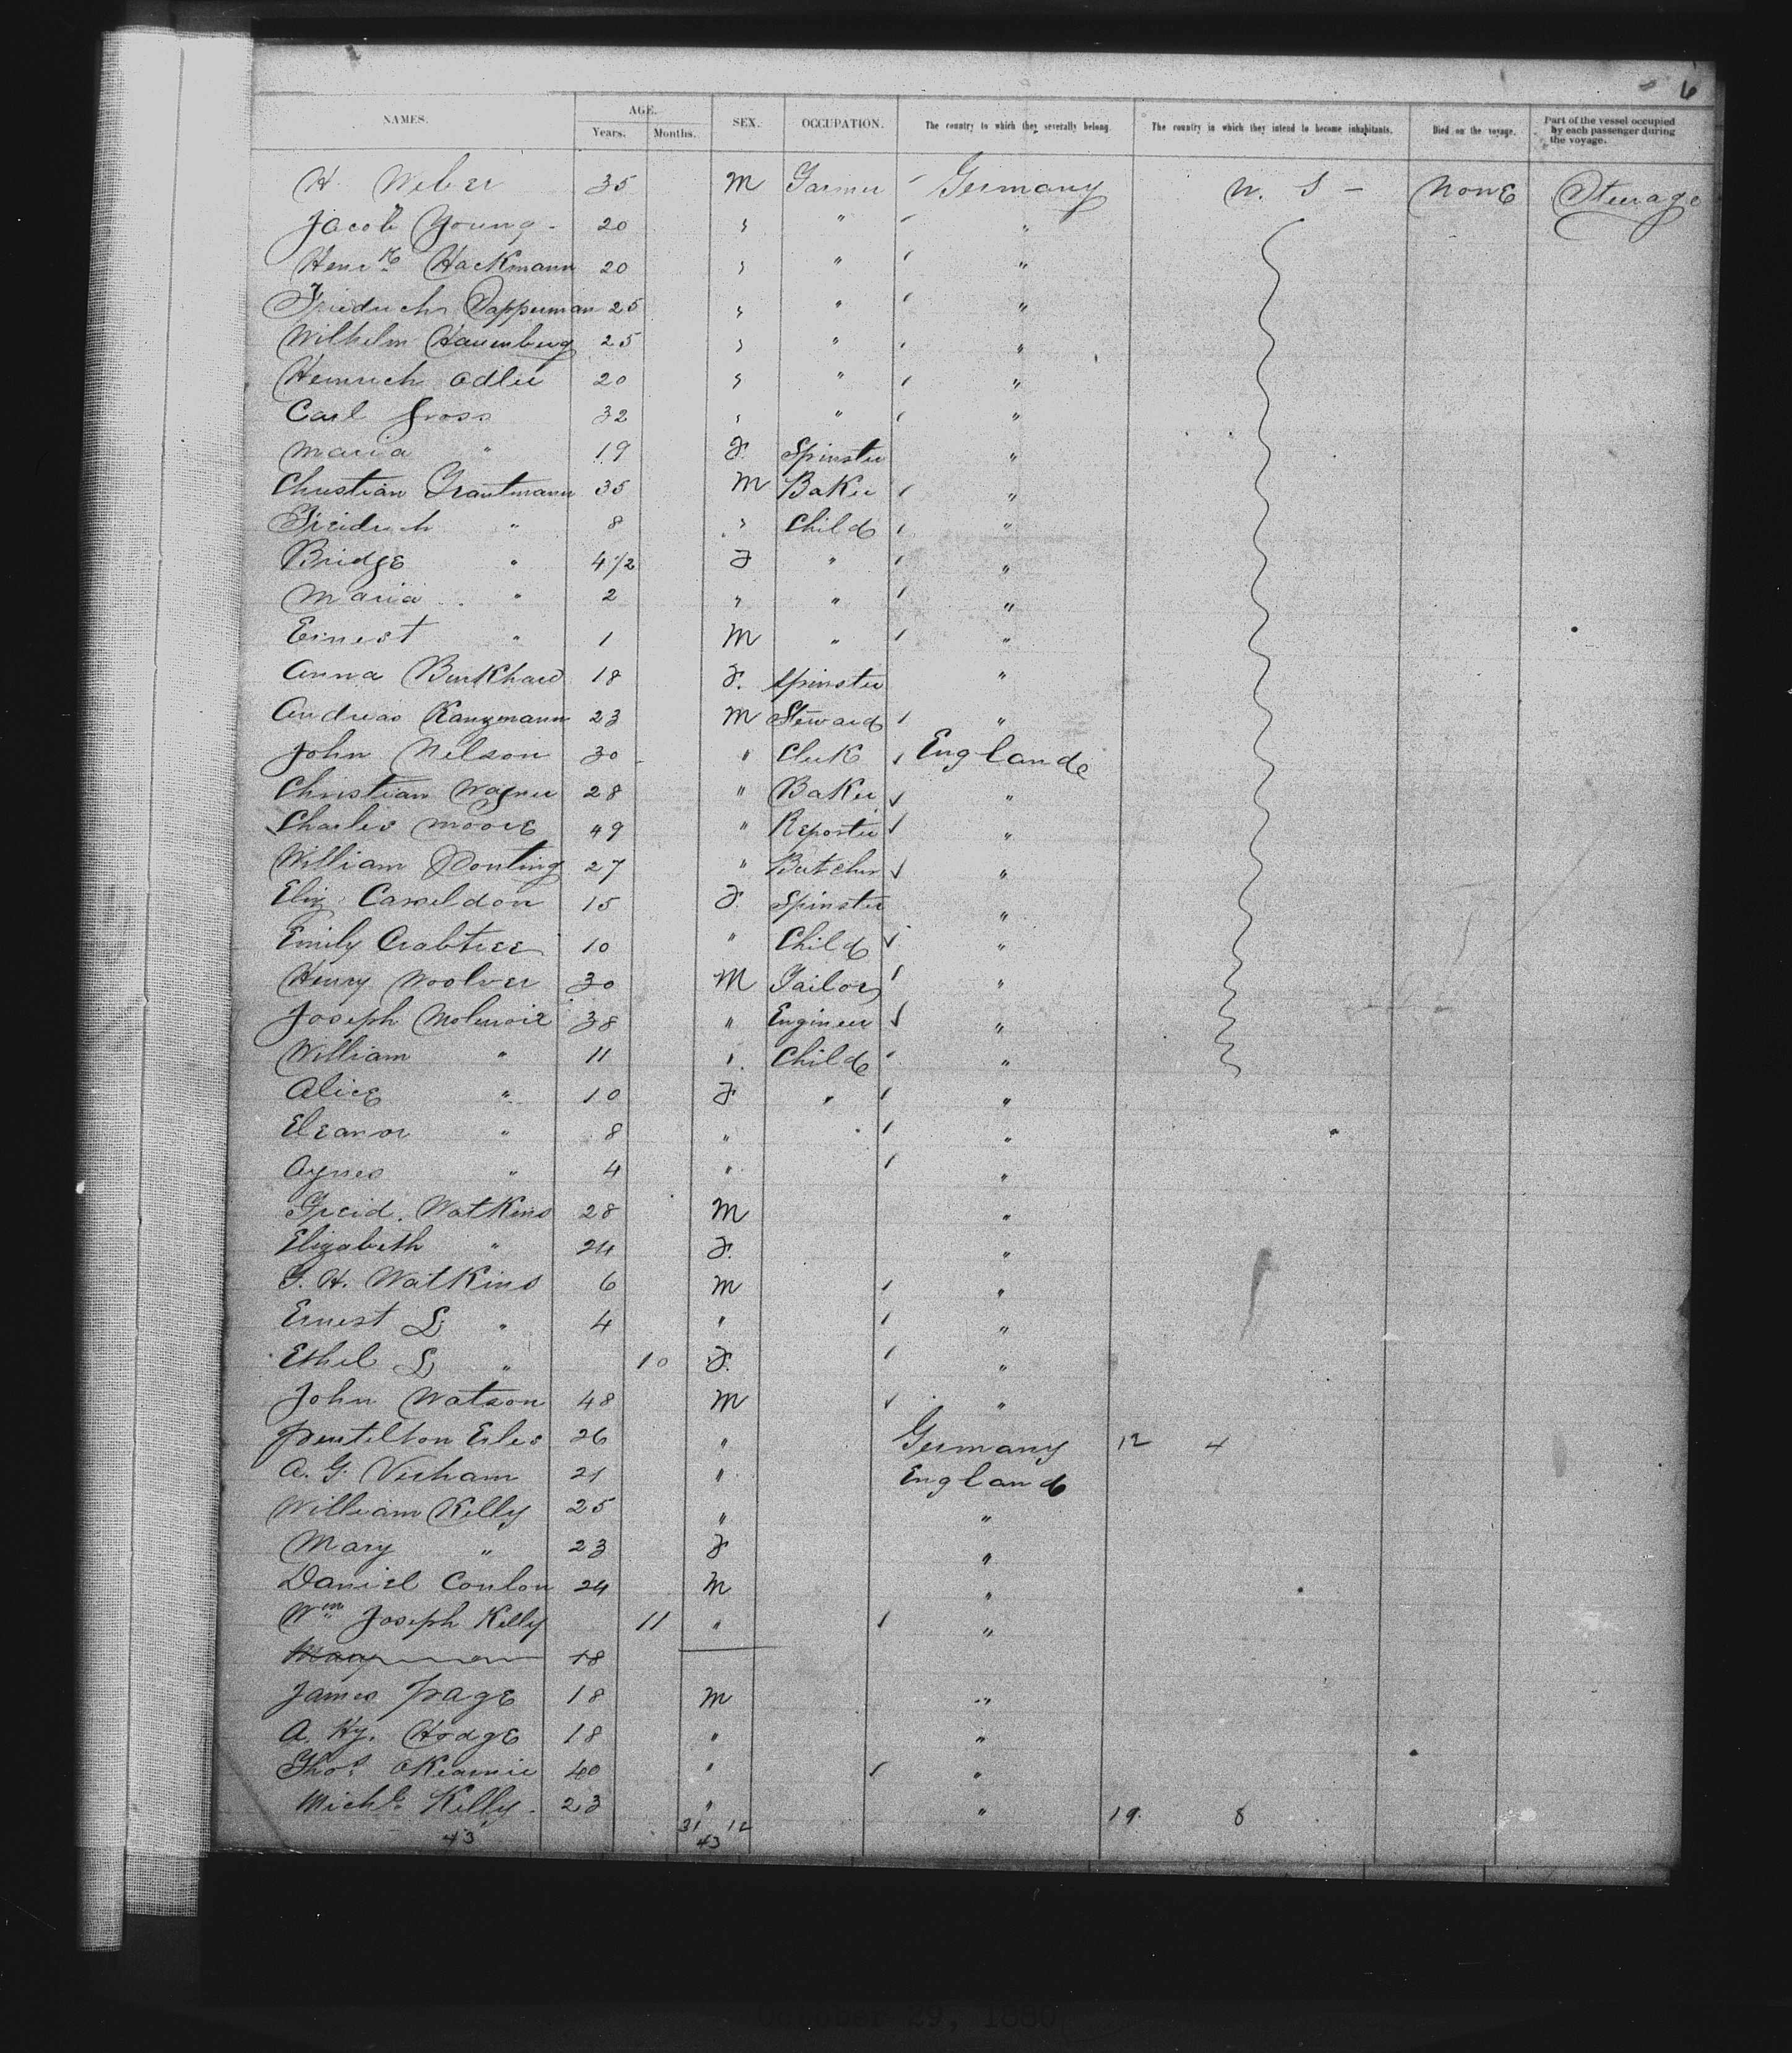 6
NAMES. AGE. Years. Months. SEX. OCCUPATION. The country to which they severally belong. The country in which they intend to become inhabitants. Died on the voyage. Part of the vessel occupied by each passenger during the voyage.
H. Weber 35 M Farmer Germany U. S - None Steerage
Jacob Young - 20 " " "
Henr Hackmann 20 " " "
Friedrich 25 " " "
Wilhelm 25 " " "
Heinrich Adler 20 " " "
Carl Gross 32 " " "
Maria " 19 F. Spinster "
Christian Trautmann 35 M Baker "
Freidrich " 8 " Child "
Bridge " 4 1/2 F " "
Maria " 2 " " "
Ernest " 1 M " "
Anna Burkhard 18 F. Spinster "
Andreas Kanzmann 23 M Steward "
John Nelson 30 " Clerk England
Christian Wagner 28 " Baker "
Charles Moore 49 " Reporter "
William Ponting 27 " Butcher "
Eliz. 15 F. Spinster "
Emily Crabtree 10 " Child "
Henry Woolver 30 M Tailor "
Joseph 38 " Engineer "
William " 11 " Child "
Alice " 10 F " "
Eleanor " 8 " "
Agnes " 4 " "
Freid. Watkins 28 M "
Elizabeth " 24 F. "
G. H. Watkins 6 M "
Ernest L " 4 " "
Ethel L " 10 F. "
John Watson 48 M "
Erles 26 " Germany 12 4
A. G. 21 " England
William Kelly 25 " "
Mary " 23 F "
Daniel Conlon 24 M "
Wm Joseph Kelly 11 " "
18
James Page 18 M "
A. Hy. Hodge 18 " "
Thos. 40 " "
Michl. Kelly - 23 " " 19 8
43 31 12
43
October 29, 1880